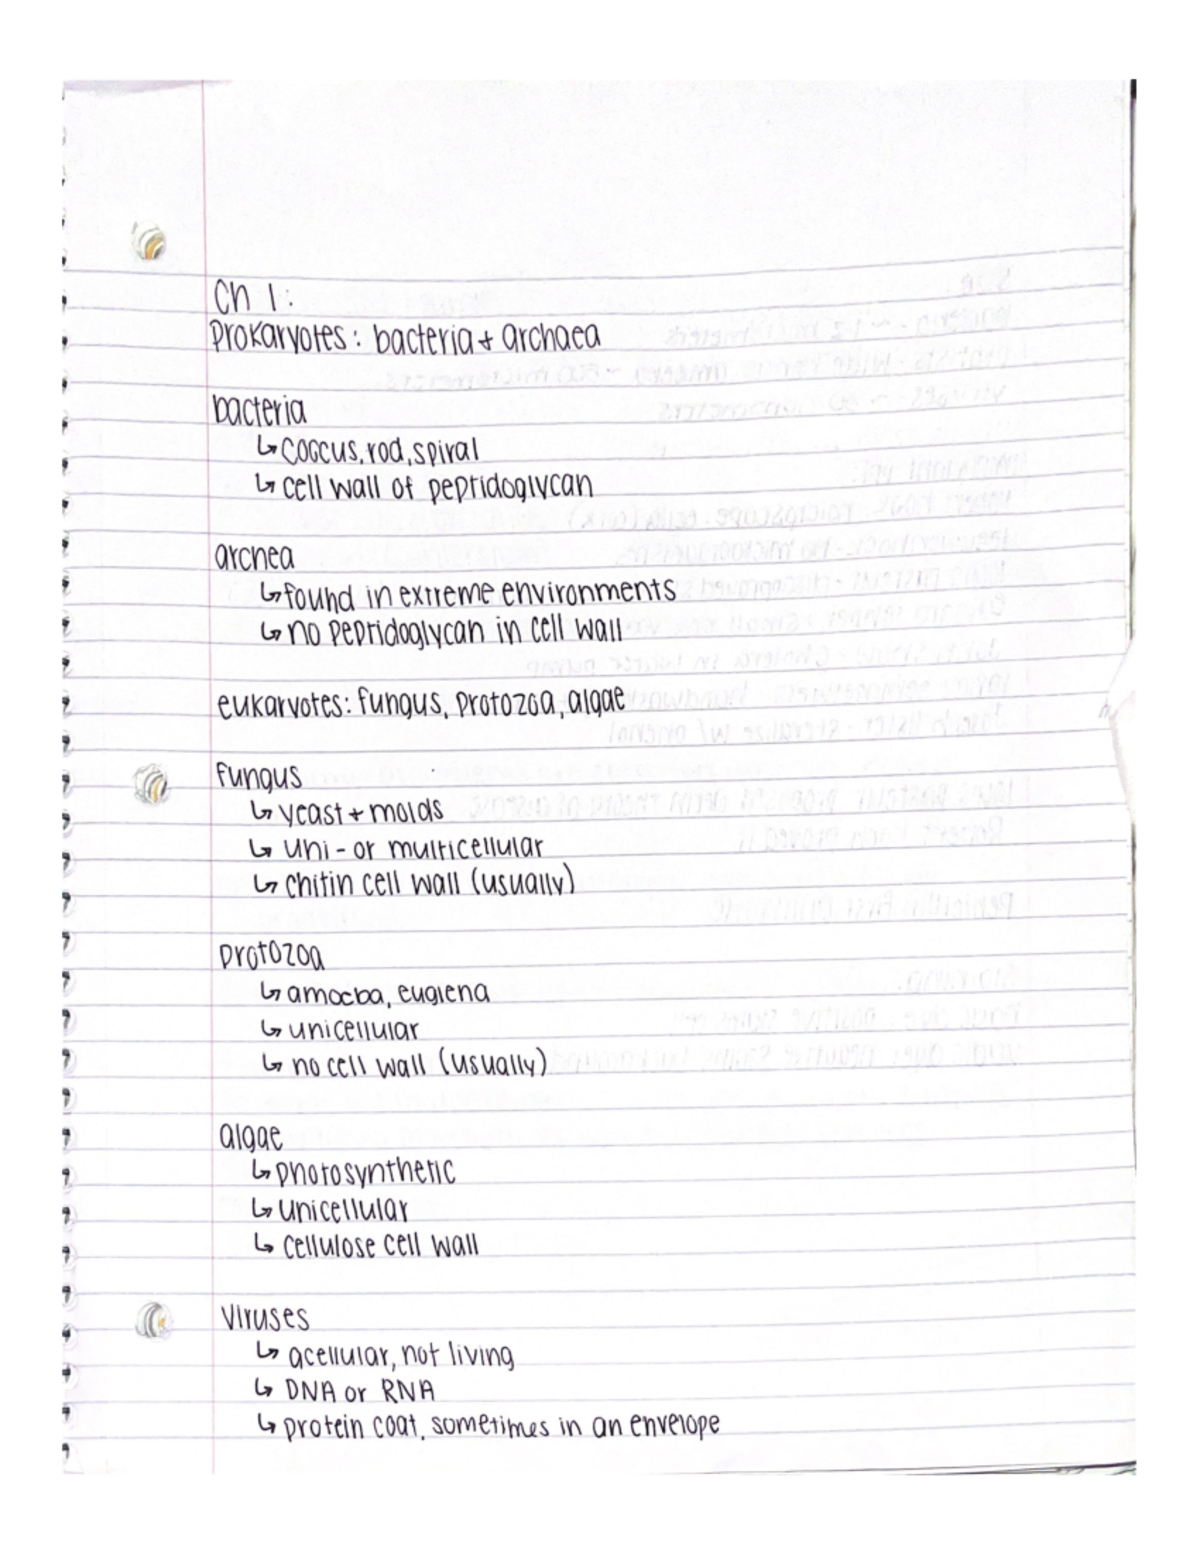 Ch 1:
Prokaryotes: bacteria + archaea
bacteria
↳ coccus, rod, spiral
↳ cell wall of peptidoglycan
archea
↳ found in extreme environments
↳ no peptidoglycan in cell wall
eukaryotes: fungus, protozoa, algae
fungus
↳ yeast + molds
↳ uni- or multicellular
↳ chitin cell wall (usually)
protozoa
↳ amoeba, euglena
↳ unicellular
↳ no cell wall (usually)
algae
↳ photosynthetic
↳ unicellular
↳ cellulose cell wall
Viruses
↳ acellular, not living
↳ DNA or RNA
↳ protein coat, sometimes in an envelope